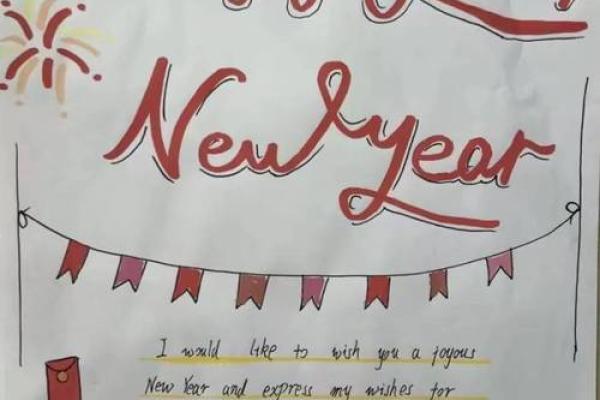 New Year
I would like to wish you a joyous
New Year and express my wishes for